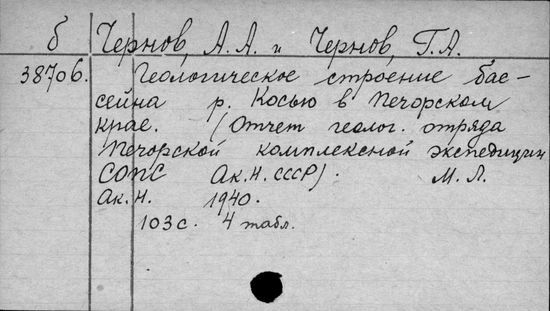 б Чернов, А.А. и Чернов, Г.А.
38706. Геологическое строение бас-
сейна р. Косью в Печорском
крае. (Отчет геолог. отряда
Печорской комплексной экспедиции
СОПС Ак.Н. СССР). М.Л.
Ак.Н. 1940.
103с. 4 табл.